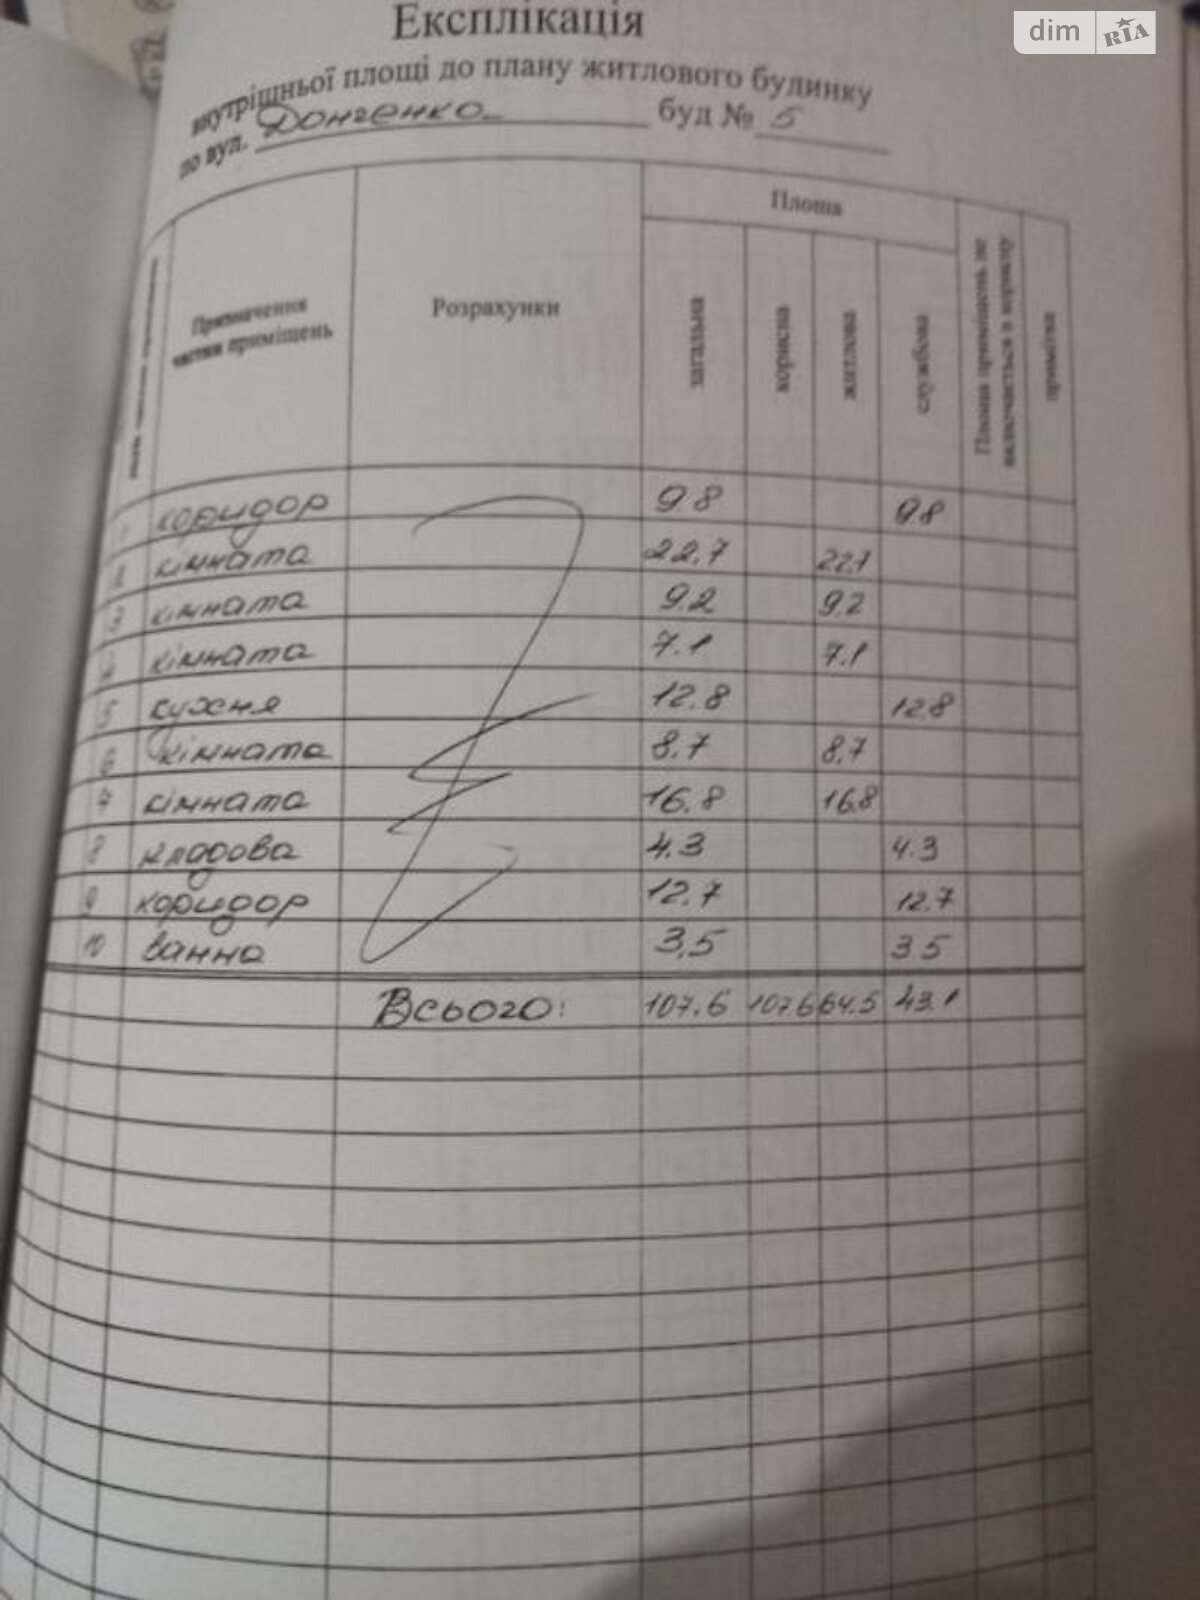 dim RIA
Експлікація
внутрішньої площі до плану житлового будинку
по вул. Донченко буд № 5
Призначення частин приміщень
Розрахунки
Площа
загальна
корисна
житлова
службова
Площа приміщень не включається в корисну
примітка
1 коридор 9.8 9.8
2 кімната 22.7 22.7
3 кімната 9.2 9.2
4 кімната 7.1 7.1
5 кухня 12.8 12.8
6 кімната 8.7 8.7
7 кімната 16.8 16.8
8 кладова 4.3 4.3
9 коридор 12.7 12.7
10 ванна 3.5 3.5
Всього: 107.6 107.6 64.5 43.1